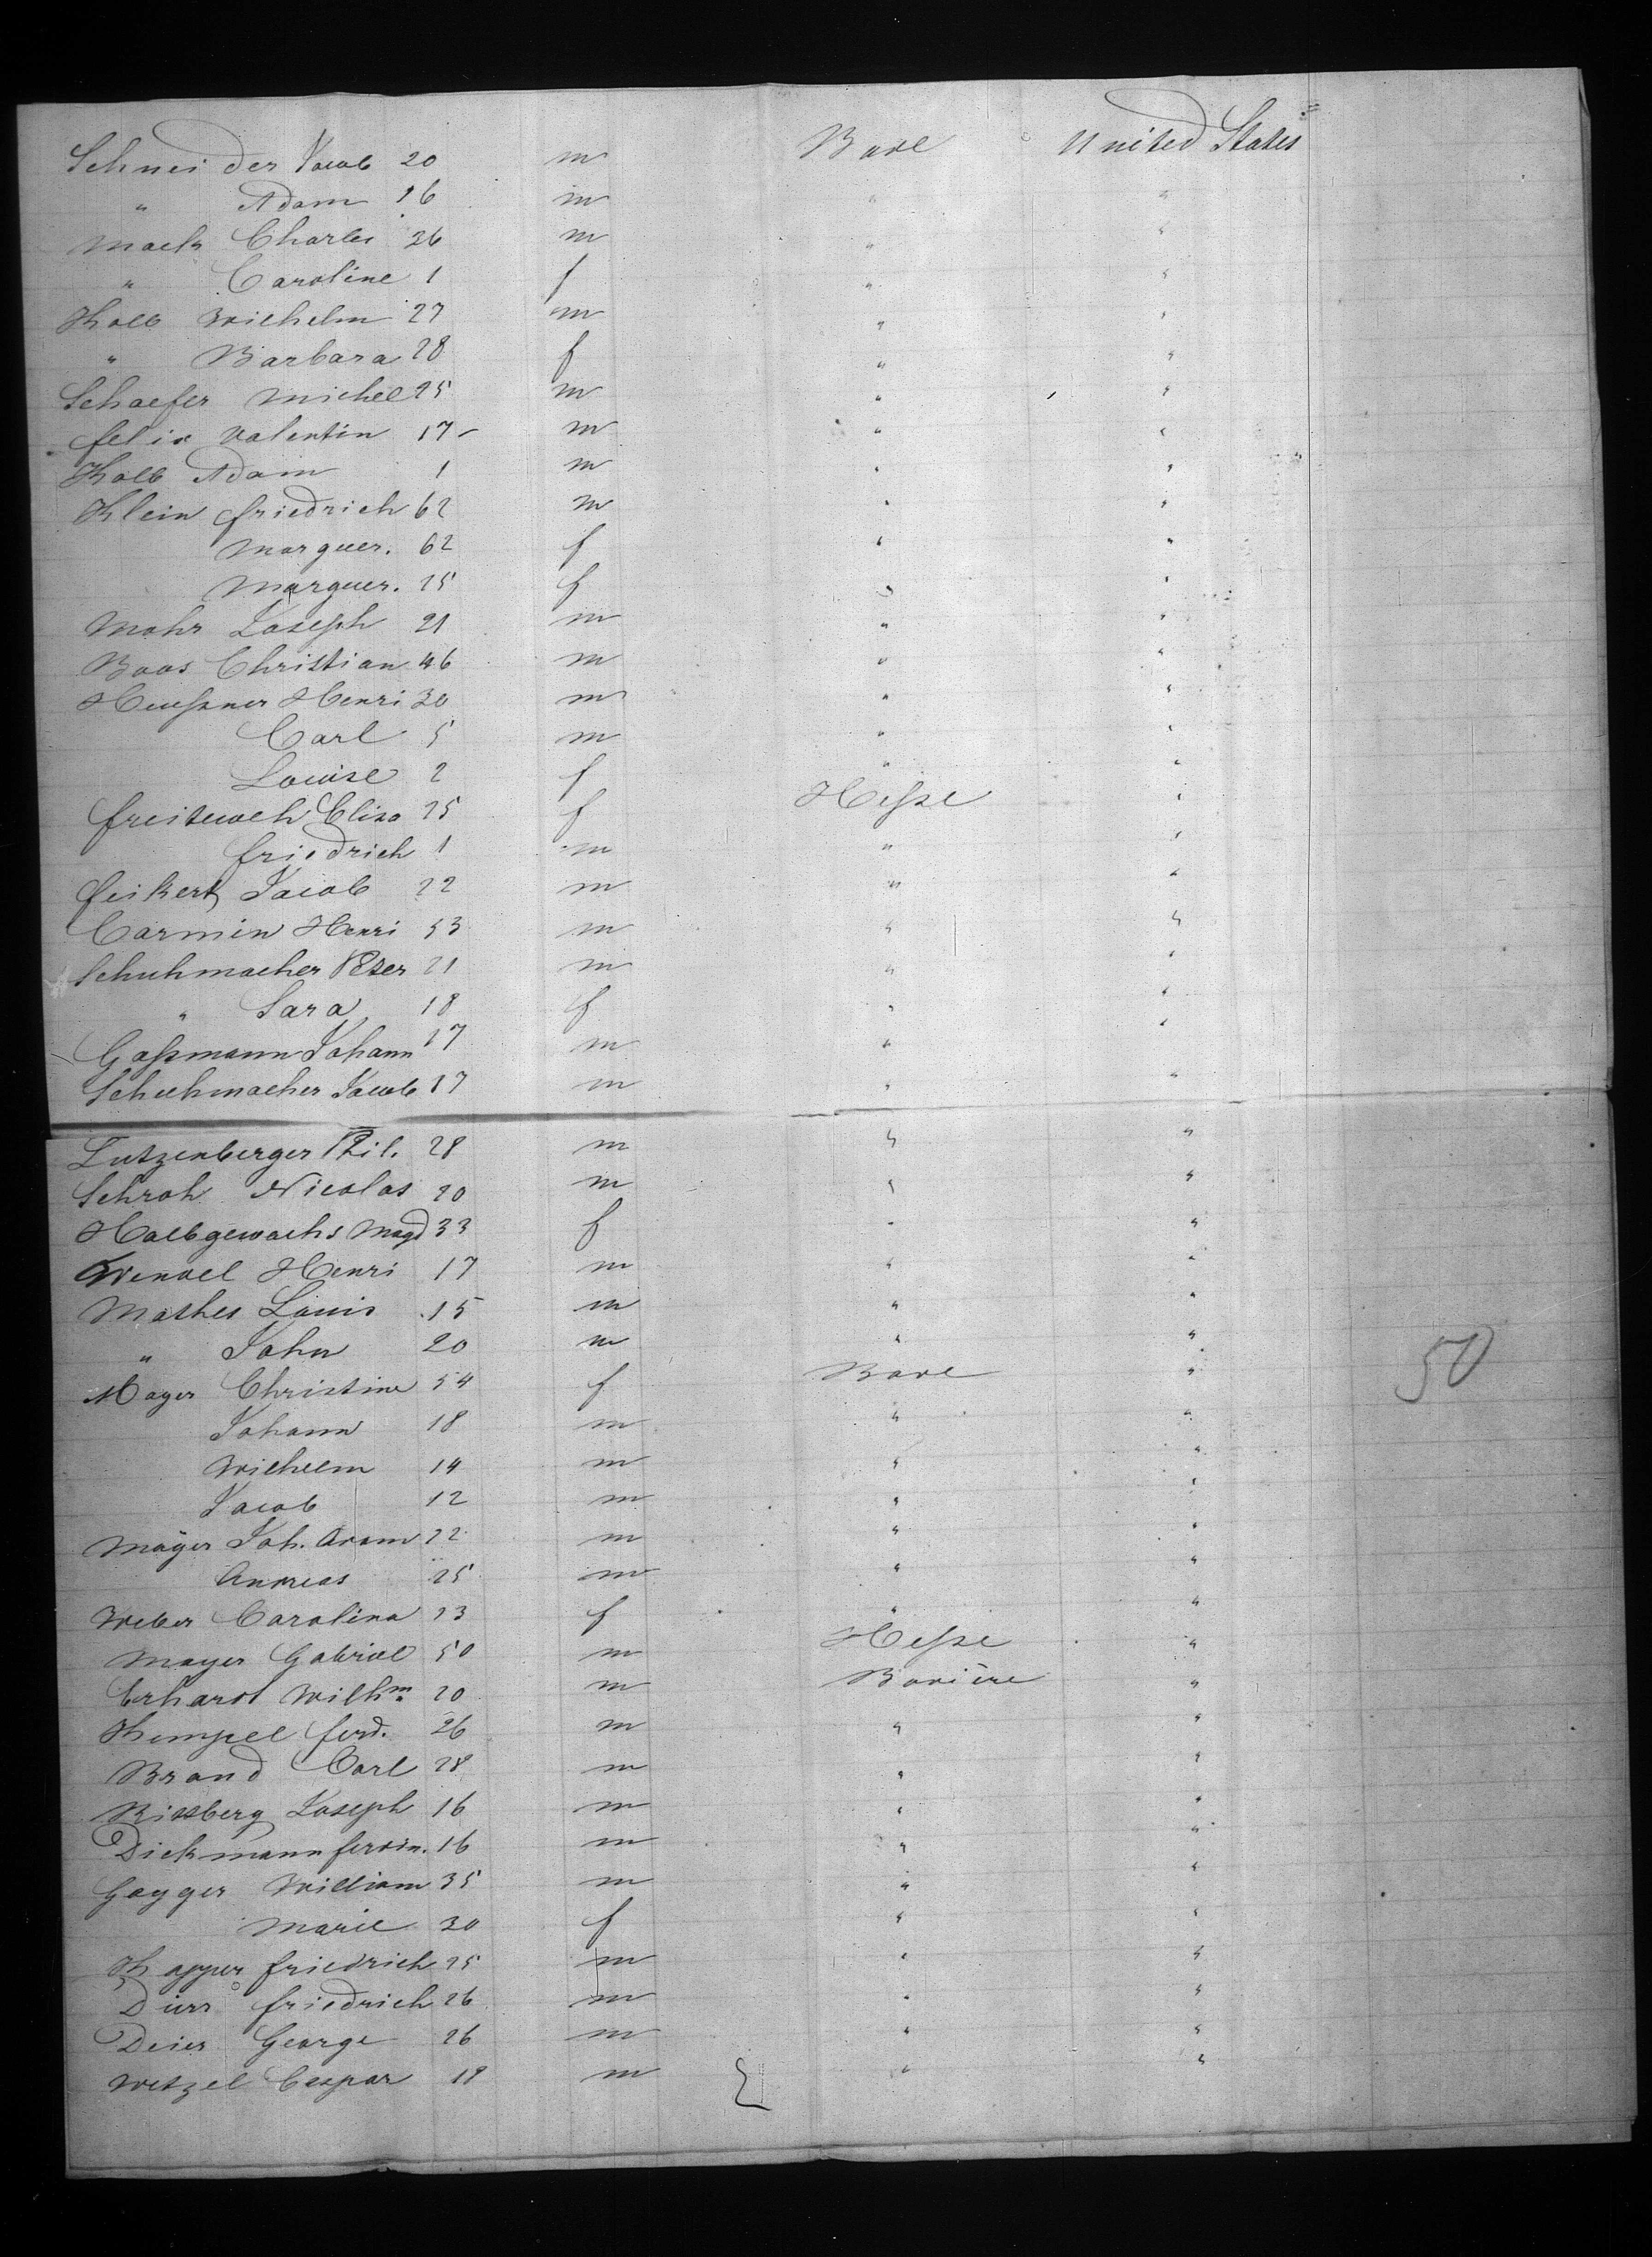 Schneider Jacob 20 m Bade United States
" Adam 16 m " "
Mack Charles 26 m " "
" Caroline 1 f " "
Kolb Wilhelm 27 m " "
" Barbara 28 f " "
Schaefer Michel 25 m " "
Felix Valentin 17 m " "
Kolb Adam 1 m " "
Klein Friedrich 62 m " "
Marguer. 62 f " "
Marguer. 25 f " "
Mohr Joseph 21 m " "
Boos Christian 46 m " "
Heußner Henri 30 m " "
Carl 5 m " "
Louise 2 f " "
Elisa 25 f Heße "
Friedrich 1 m " "
Feikert Jacob 22 m " "
Carmin Henri 53 m " "
Schuhmacher Peter 21 m " "
" Sara 18 f " "
Gaßmann Johann 17 m " "
Schuhmacher Jacob 17 m " "
Lutzenberger Phil. 28 m " "
Schroh Nicolas 20 m " "
Halbgewachs Magd 33 f " "
Wendel Henri 17 m " "
Mathes Louis 15 m " "
" John 20 m " "
Mayer Christine 54 f Bade "
Johann 18 m " "
Wilhelm 14 m " "
Jacob 12 m " "
Mayer Joh. Adam 22 m " "
Andreas 25 m " "
Weber Carolina 23 f " "
Mayer Gabriel 50 m Heße "
Erhardt Wilhm 20 m Bavière "
Kempel Ferd. 26 m " "
Brand Carl 28 m " "
Joseph 16 m " "
Dickmann Ferdin. 16 m " "
Gagger William 35 m " "
Marie 30 f " "
Kapper Friedrich 25 m " "
Dürr Friedrich 26 m " "
Deier George 26 m " "
Wetzel Caspar 18 m " "
50